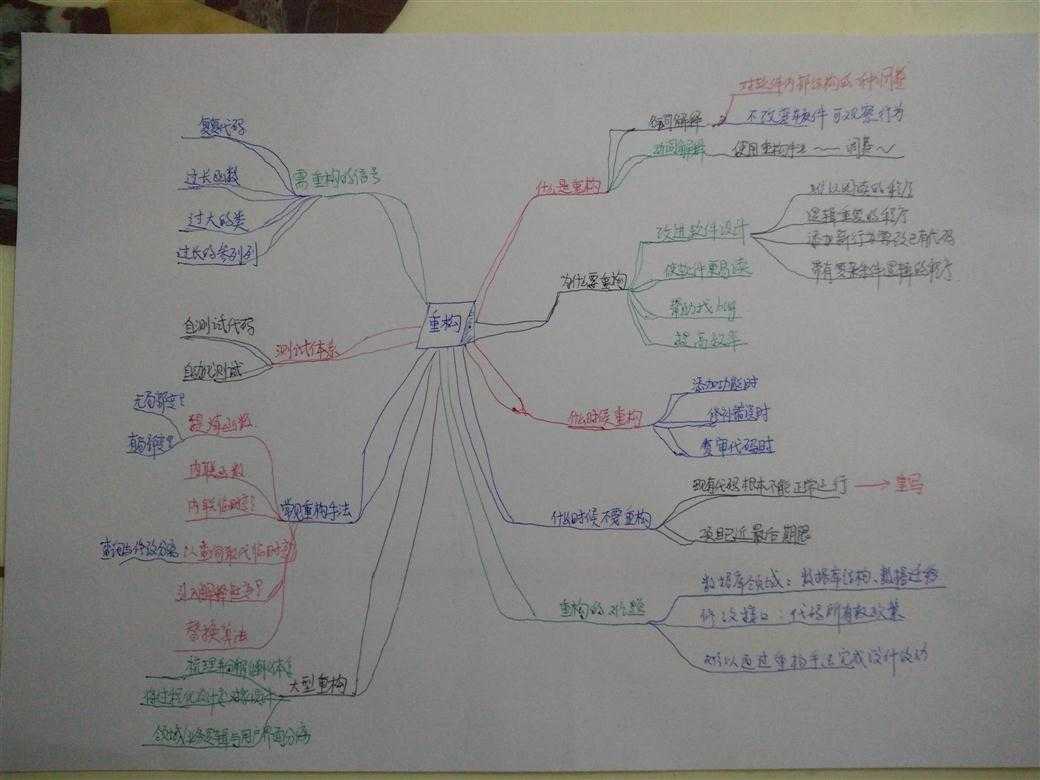 重构
什么是重构
名词解释
对软件内部结构的一种调整
不改变软件可观察行为
动词解释
使用重构手法～～调整～
为什么要重构
改进软件设计
难以阅读的程序
逻辑重复的程序
添加新行为需改已有代码
带有复杂条件逻辑的程序
使软件更易读
帮助找bug
提高效率
什么时候重构
添加功能时
修补错误时
复审代码时
什么时候不要重构
现有代码根本不能正常运行
重写
项目已近最后期限
重构的难题
数据库领域：数据库结构、数据迁移
修改接口：代码所有权政策
难以通过重构手法完成设计改动
需重构的信号
复代码
过长函数
过大的类
过长的参列列
测试体系
自测试代码
自动化测试
常见重构手法
提炼函数
无局部变
有局部变
内联函数
内联临时变
以查询取代临时变
查询与修改分离
引入解释性变
替换算法
大型重构
梳理并分解继承体
将过程化设计
领域/业务逻辑与用户界面分离